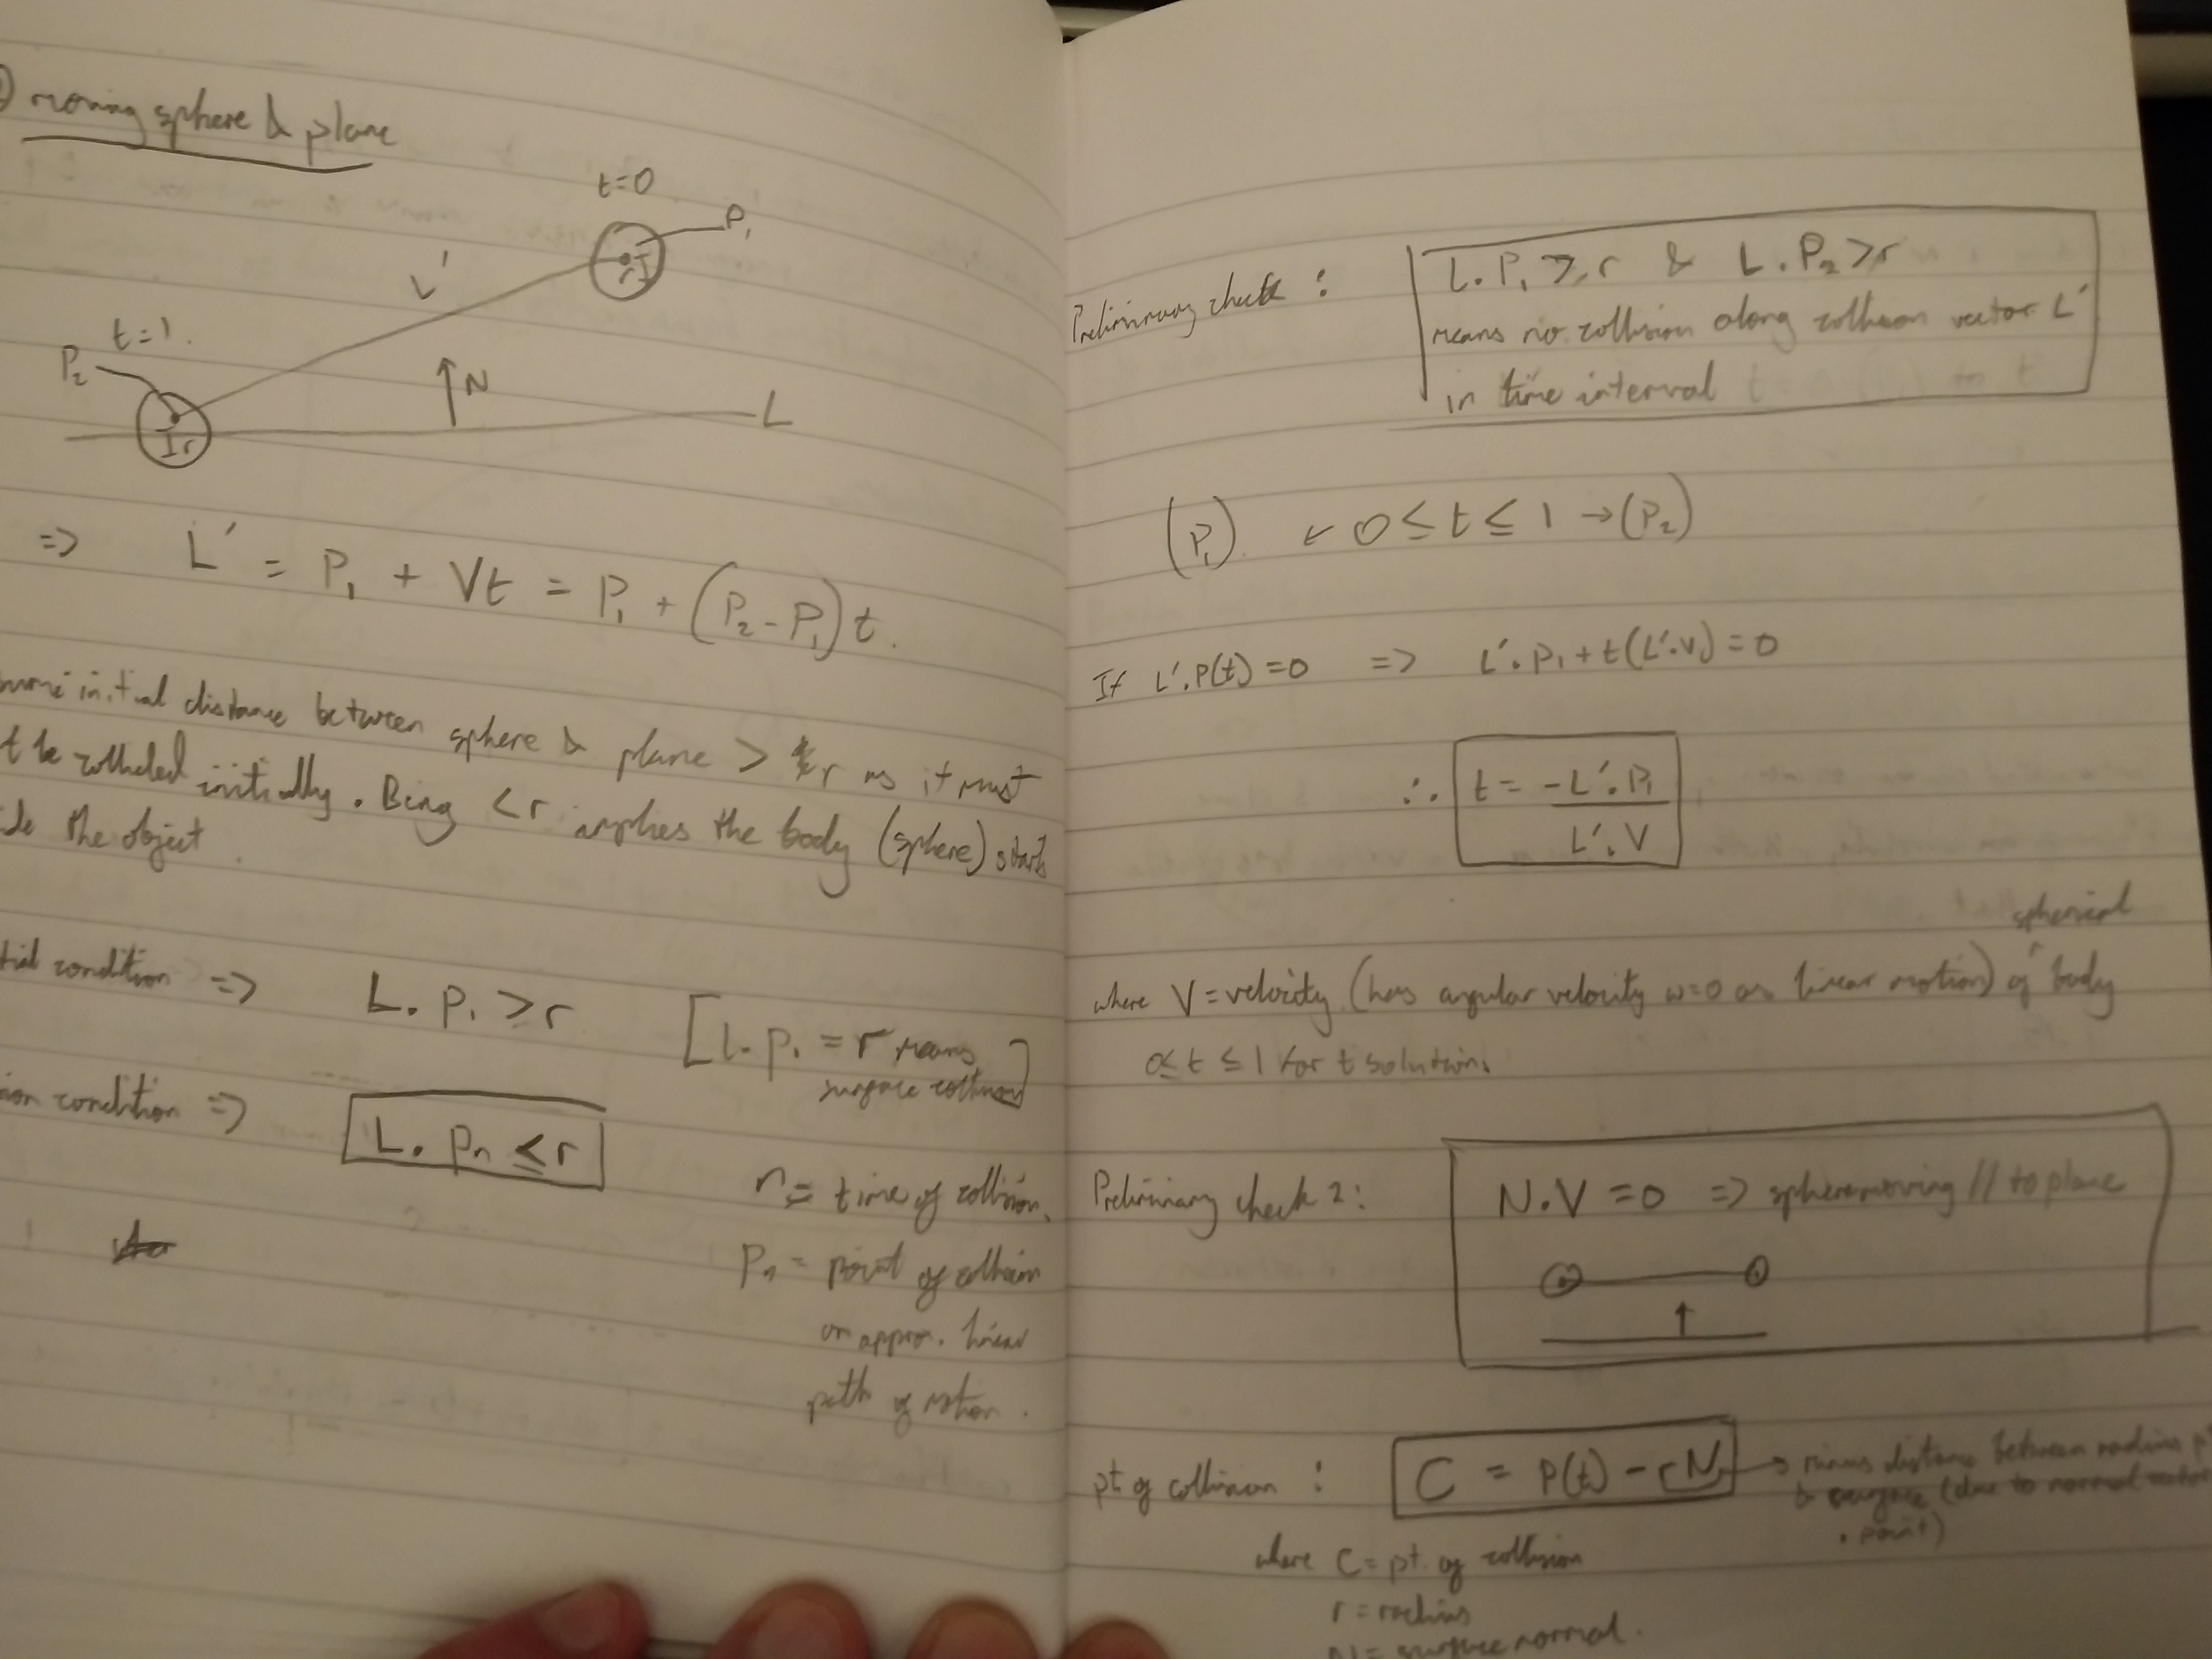 moving sphere & plane
t=0
P₁
r
L'
t=1.
P₂
N
L
r
=> L' = P₁ + Vt = P₁ + (P₂ - P₁)t.
initial distance between sphere & plane > r as it must
t be collided initially. Being < r implies the body (sphere) starts
the object.
condition => L. P₁ > r [L. P₁ = r means
surface collision]
condition => L. Pₙ ≤ r
n = time of collision.
Pₙ = point of collision
on approx. linear
path of motion.
Preliminary check :
L. P₁ ≥ r & L. P₂ > r
means no collision along collision vector L'
in time interval
(P₁) ← 0 ≤ t ≤ 1 → (P₂)
If L'. P(t) = 0 => L'. P₁ + t(L'. V) = 0
∴ t = -L'. P₁
L'. V
spherical
where V = velocity (has angular velocity ω=0 as linear motion) of ^ body
0 ≤ t ≤ 1 for t solution.
Preliminary check 2:
N.V = 0 => sphere moving // to plane
pt of collision : C = P(t) - rN → minus distance between radius pt
& surface (due to normal
point)
where C = pt. of collision
r = radius
N = surface normal.